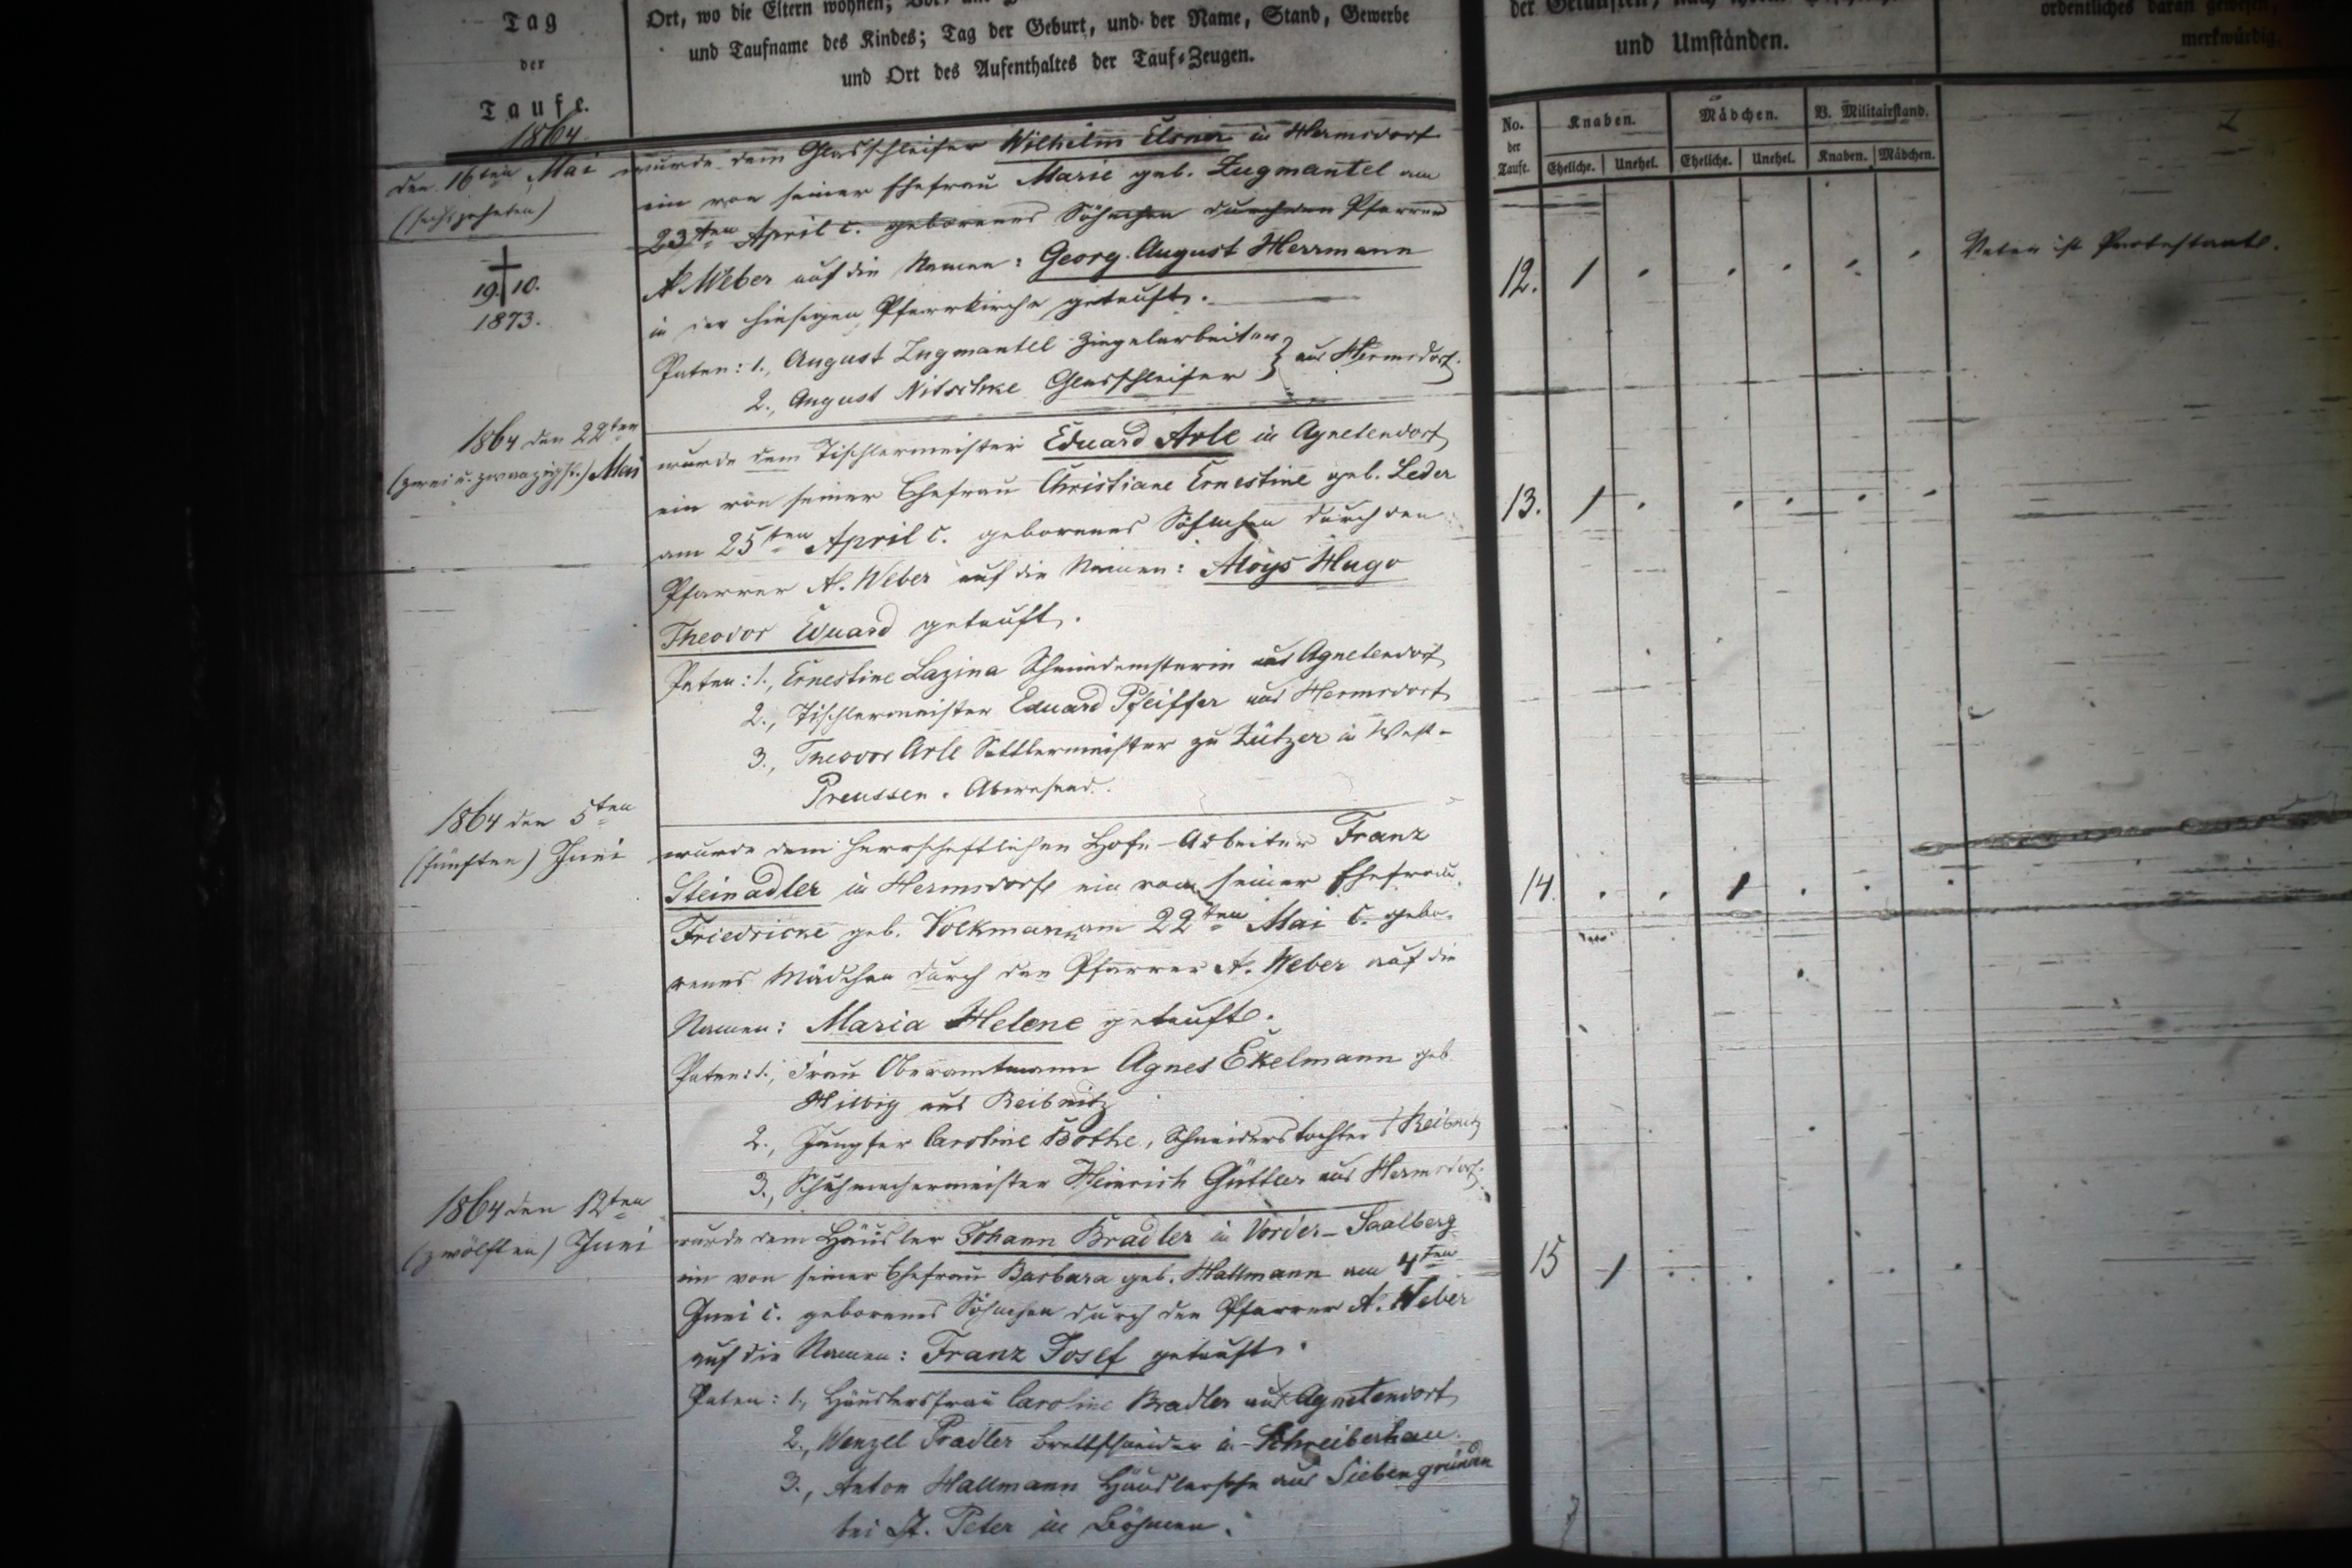 Tag
der
Taufe.
Ort, wo die Eltern wohnen;
und Taufname des Kindes; Tag der Geburt, und der Name, Stand, Gewerbe
und Ort des Aufenthaltes der Tauf-Zeugen.
und Umständen.
merkwürdig.
No.
der
Taufe.
Knaben.
Mädchen.
V. Militairstand.
Eheliche.
Unehel.
Eheliche.
Unehel.
Knaben.
Mädchen.
1864.
den 16ten Mai
(sechszehnten)
† 19/10.
1873.
wurde dem Glasschleifer Wilhelm Elsner in Hermsdorf
ein von seiner Ehefrau Marie geb. Zugmantel am
23ten April c. geborenes Söhnchen durch den Pfarrer
A. Weber auf die Namen: Georg August Herrmann
in der hiesigen Pfarrkirche getauft.
Paten: 1., August Zugmantel Ziegelarbeiter
2., August Nitschke Glasschleifer } aus Hermsdorf.
12. 1
Vater ist Protestant.
1864 den 22ten
(zwei u. zwanzigst.) Mai
wurde dem Tischlermeister Eduard Arle in Agnetendorf
ein von seiner Ehefrau Christiane Ernestine geb. Leder
am 25ten April c. geborenes Söhnchen durch den
Pfarrer A. Weber auf die Namen: Aloys Hugo
Theodor Eduard getauft.
Paten: 1., Ernestine Lazina aus Agnetendorf
2., Tischlermeister Eduard Pfeiffer aus Hermsdorf
3., Theodor Arle Sattlermeister zu in West-
Preussen. Abwesend.
13. 1
1864 den 5ten
(fünften) Juni
wurde dem herrschaftlichen Hofe-Arbeiter Franz
Steinadler in Hermsdorf ein von seiner Ehefrau
Friedricke geb. Volkmann am 22ten Mai c. gebo-
renes Mädchen durch den Pfarrer A. Weber auf die
Namen: Maria Helene getauft.
Paten: 1., Frau Oberamtmann Agnes Ekelmann geb
Hilbig aus Reibnitz
2., Jungfer Caroline Bothe, Schneiderstochter Reibnitz
3., Schuhmachermeister Heinrich Güttler aus Hermsdorf.
14. 1
1864 den 12ten
(zwölften) Juni
wurde dem Häusler Johann Bradler in Vorder-Saalberg
ein von seiner Ehefrau Barbara geb. Hallmann am 4ten
Juni c. geborenes Söhnchen durch den Pfarrer A. Weber
auf die Namen: Franz Josef getauft.
Paten: 1., Häuslersfrau Caroline Bradler aus Agnetendorf
2., Wenzel Pradler Brettschneider in Schreiberhau.
3., Anton Hallmann aus Siebengründen
bei St. Peter in Böhmen.
15 1